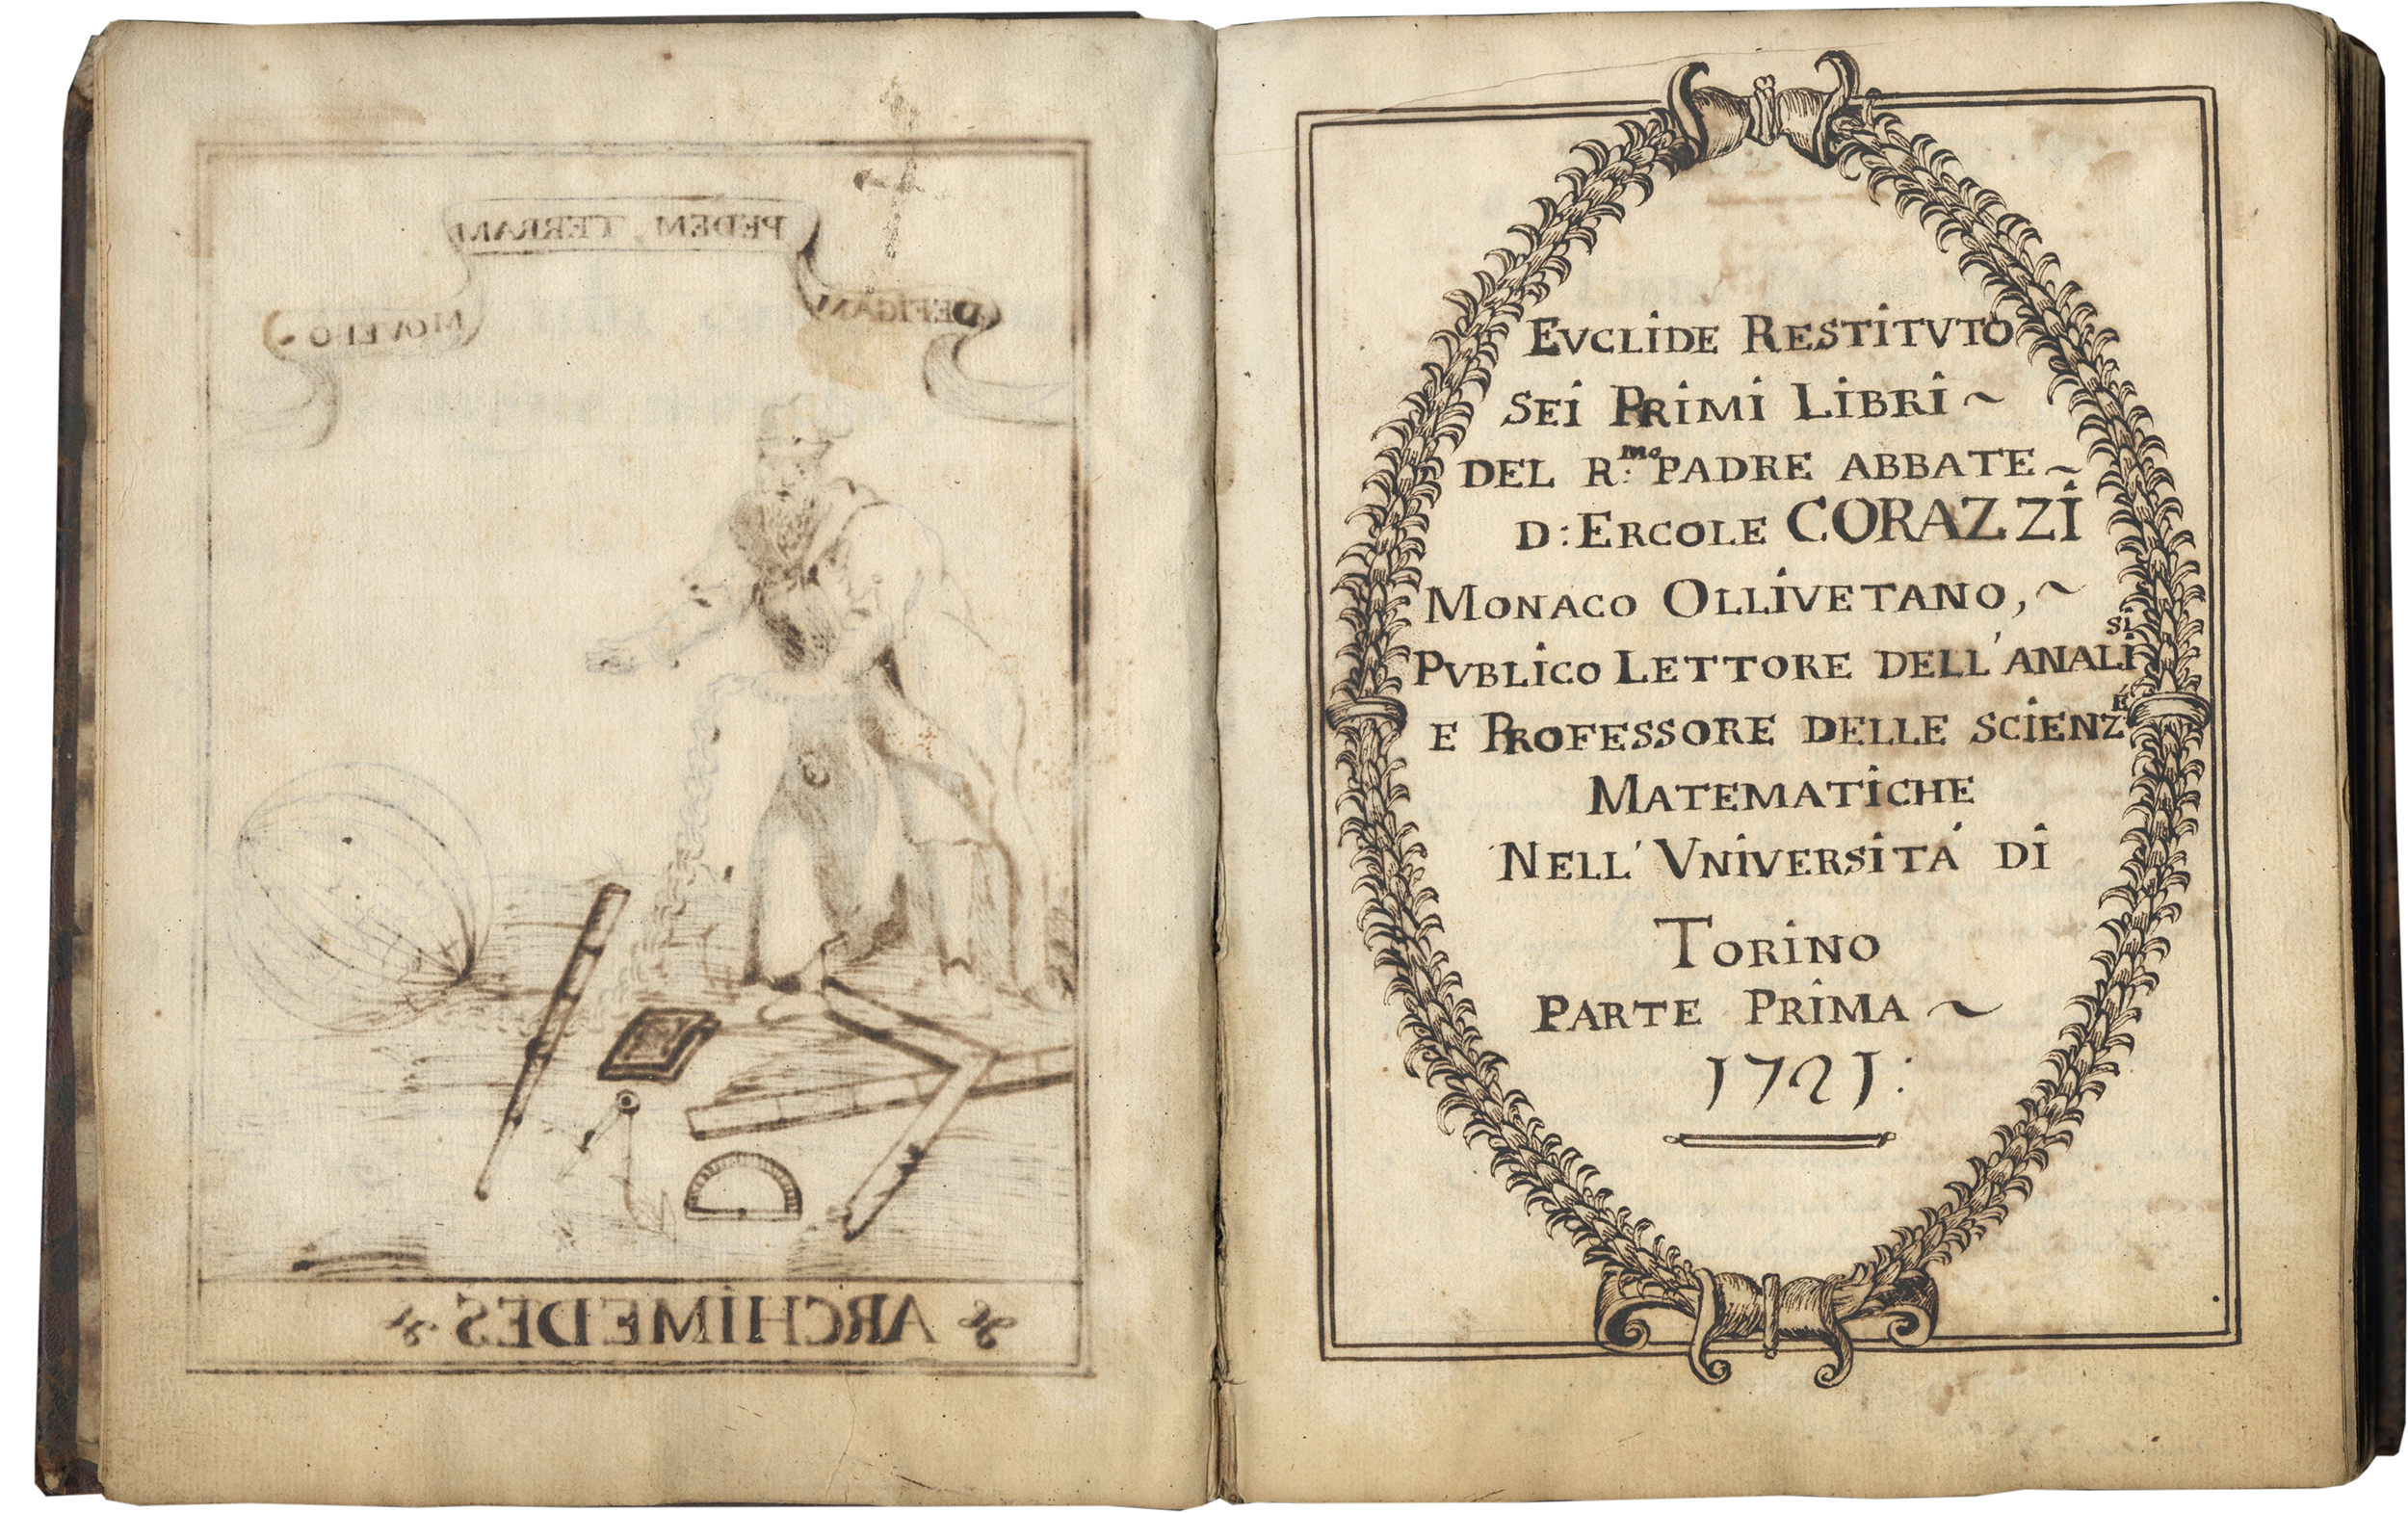 DEFIGAM PEDEM, TERRAM MOVEBO
ARCHIMEDES
EVCLIDE RESTITVTO
SEI PRIMI LIBRI ~
DEL R:mo PADRE ABBATE ~
D: ERCOLE CORAZZI
MONACO OLLIVETANO, ~
PVBLICO LETTORE DELL'ANALISI
E PROFESSORE DELLE SCIENZÉ
MATEMATICHE
NELL' VNIVERSITÁ DI
TORINO
PARTE PRIMA ~
1721: